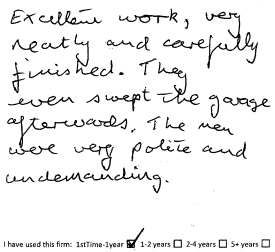 Excellent work, very
neatly and carefully
finished. They
even swept the garage
afterwards. The men
were very polite and
undemanding.
I have used this firm: 1stTime-1year ☑ 1-2 years ☐ 2-4 years ☐ 5+ years ☐